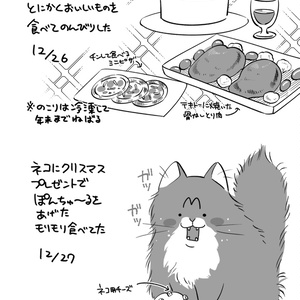 とにかくおいしいものを
食べてのんびりした
12/26
チンして食べる
ミニピザ
テキトーに焼いた
骨なしとり肉
※のこりは冷凍して
年末までねばる
ネコにクリスマス
プレゼントで
ぽんちゅ〜るを
あげた
モリモリ食べてた
12/27
ガツ
ガツ
ネコ用チーズ